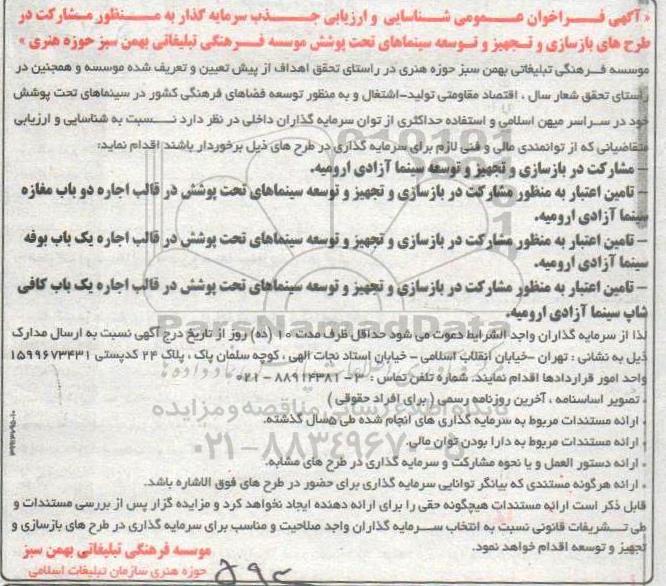 « آگهی فراخوان عمومی شناسایی و ارزیابی جذب سرمایه گذار به منظور مشارکت در
طرح های بازسازی و تجهیز و توسعه سینماهای تحت پوشش موسسه فرهنگی تبلیغاتی بهمن سبز حوزه هنری »
موسسه فرهنگی تبلیغاتی بهمن سبز حوزه هنری در راستای تحقق اهداف از پیش تعیین و تعریف شده موسسه و همچنین در
راستای تحقق شعار سال ، اقتصاد مقاومتی تولید-اشتغال و به منظور توسعه فضاهای فرهنگی کشور در سینماهای تحت پوشش
خود در سراسر میهن اسلامی و استفاده حداکثری از توان سرمایه گذاران داخلی در نظر دارد نسبت به شناسایی و ارزیابی
متقاضیانی که از توانمندی مالی و فنی لازم برای سرمایه گذاری در طرح های ذیل برخوردار باشند اقدام نماید:
– مشارکت در بازسازی و تجهیز و توسعه سینما آزادی ارومیه.
– تامین اعتبار به منظور مشارکت در بازسازی و تجهیز و توسعه سینماهای تحت پوشش در قالب اجاره دو باب مغازه
سینما آزادی ارومیه.
– تامین اعتبار به منظور مشارکت در بازسازی و تجهیز و توسعه سینماهای تحت پوشش در قالب اجاره یک باب بوفه
سینما آزادی ارومیه.
– تامین اعتبار به منظور مشارکت در بازسازی و تجهیز و توسعه سینماهای تحت پوشش در قالب اجاره یک باب کافی
شاپ سینما آزادی ارومیه.
لذا از سرمایه گذاران واجد الشرایط دعوت می شود حداقل ظرف مدت ۱۰ (ده) روز از تاریخ درج آگهی نسبت به ارسال مدارک
ذیل به نشانی : تهران -خیابان انقلاب اسلامی - خیابان استاد نجات الهی ، کوچه سلمان پاک ، پلاک ۲۴ کدپستی ۱۵۹۹۶۷۳۴۳۱
واحد امور قراردادها اقدام نمایند. شماره تلفن تماس : ۳-۸۸۹۱۴۳۸۱-۰۲۱
• تصویر اساسنامه ، آخرین روزنامه رسمی ( برای افراد حقوقی )
• ارائه مستندات مربوط به سرمایه گذاری های انجام شده طی ۵سال گذشته.
• ارائه مستندات مربوط به دارا بودن توان مالی.
• ارائه دستور العمل و یا نحوه مشارکت و سرمایه گذاری در طرح های مشابه.
• ارائه هرگونه مستندی که بیانگر توانایی سرمایه گذاری برای حضور در طرح های فوق الاشاره باشد.
قابل ذکر است ارائه مستندات هیچگونه حقی را برای ارائه دهنده ایجاد نخواهد کرد و مزایده گزار پس از بررسی مستندات و
طی تشریفات قانونی نسبت به انتخاب سرمایه گذاران واجد صلاحیت و مناسب برای سرمایه گذاری در طرح های بازسازی و
تجهیز و توسعه اقدام خواهد نمود.
موسسه فرهنگی تبلیغاتی بهمن سبز
حوزه هنری سازمان تبلیغات اسلامی
ParsNamadData
پایگاه اطلاع رسانی مناقصه و مزایده
۰۲۱-۸۸۳۴۹۶۷۰-۵